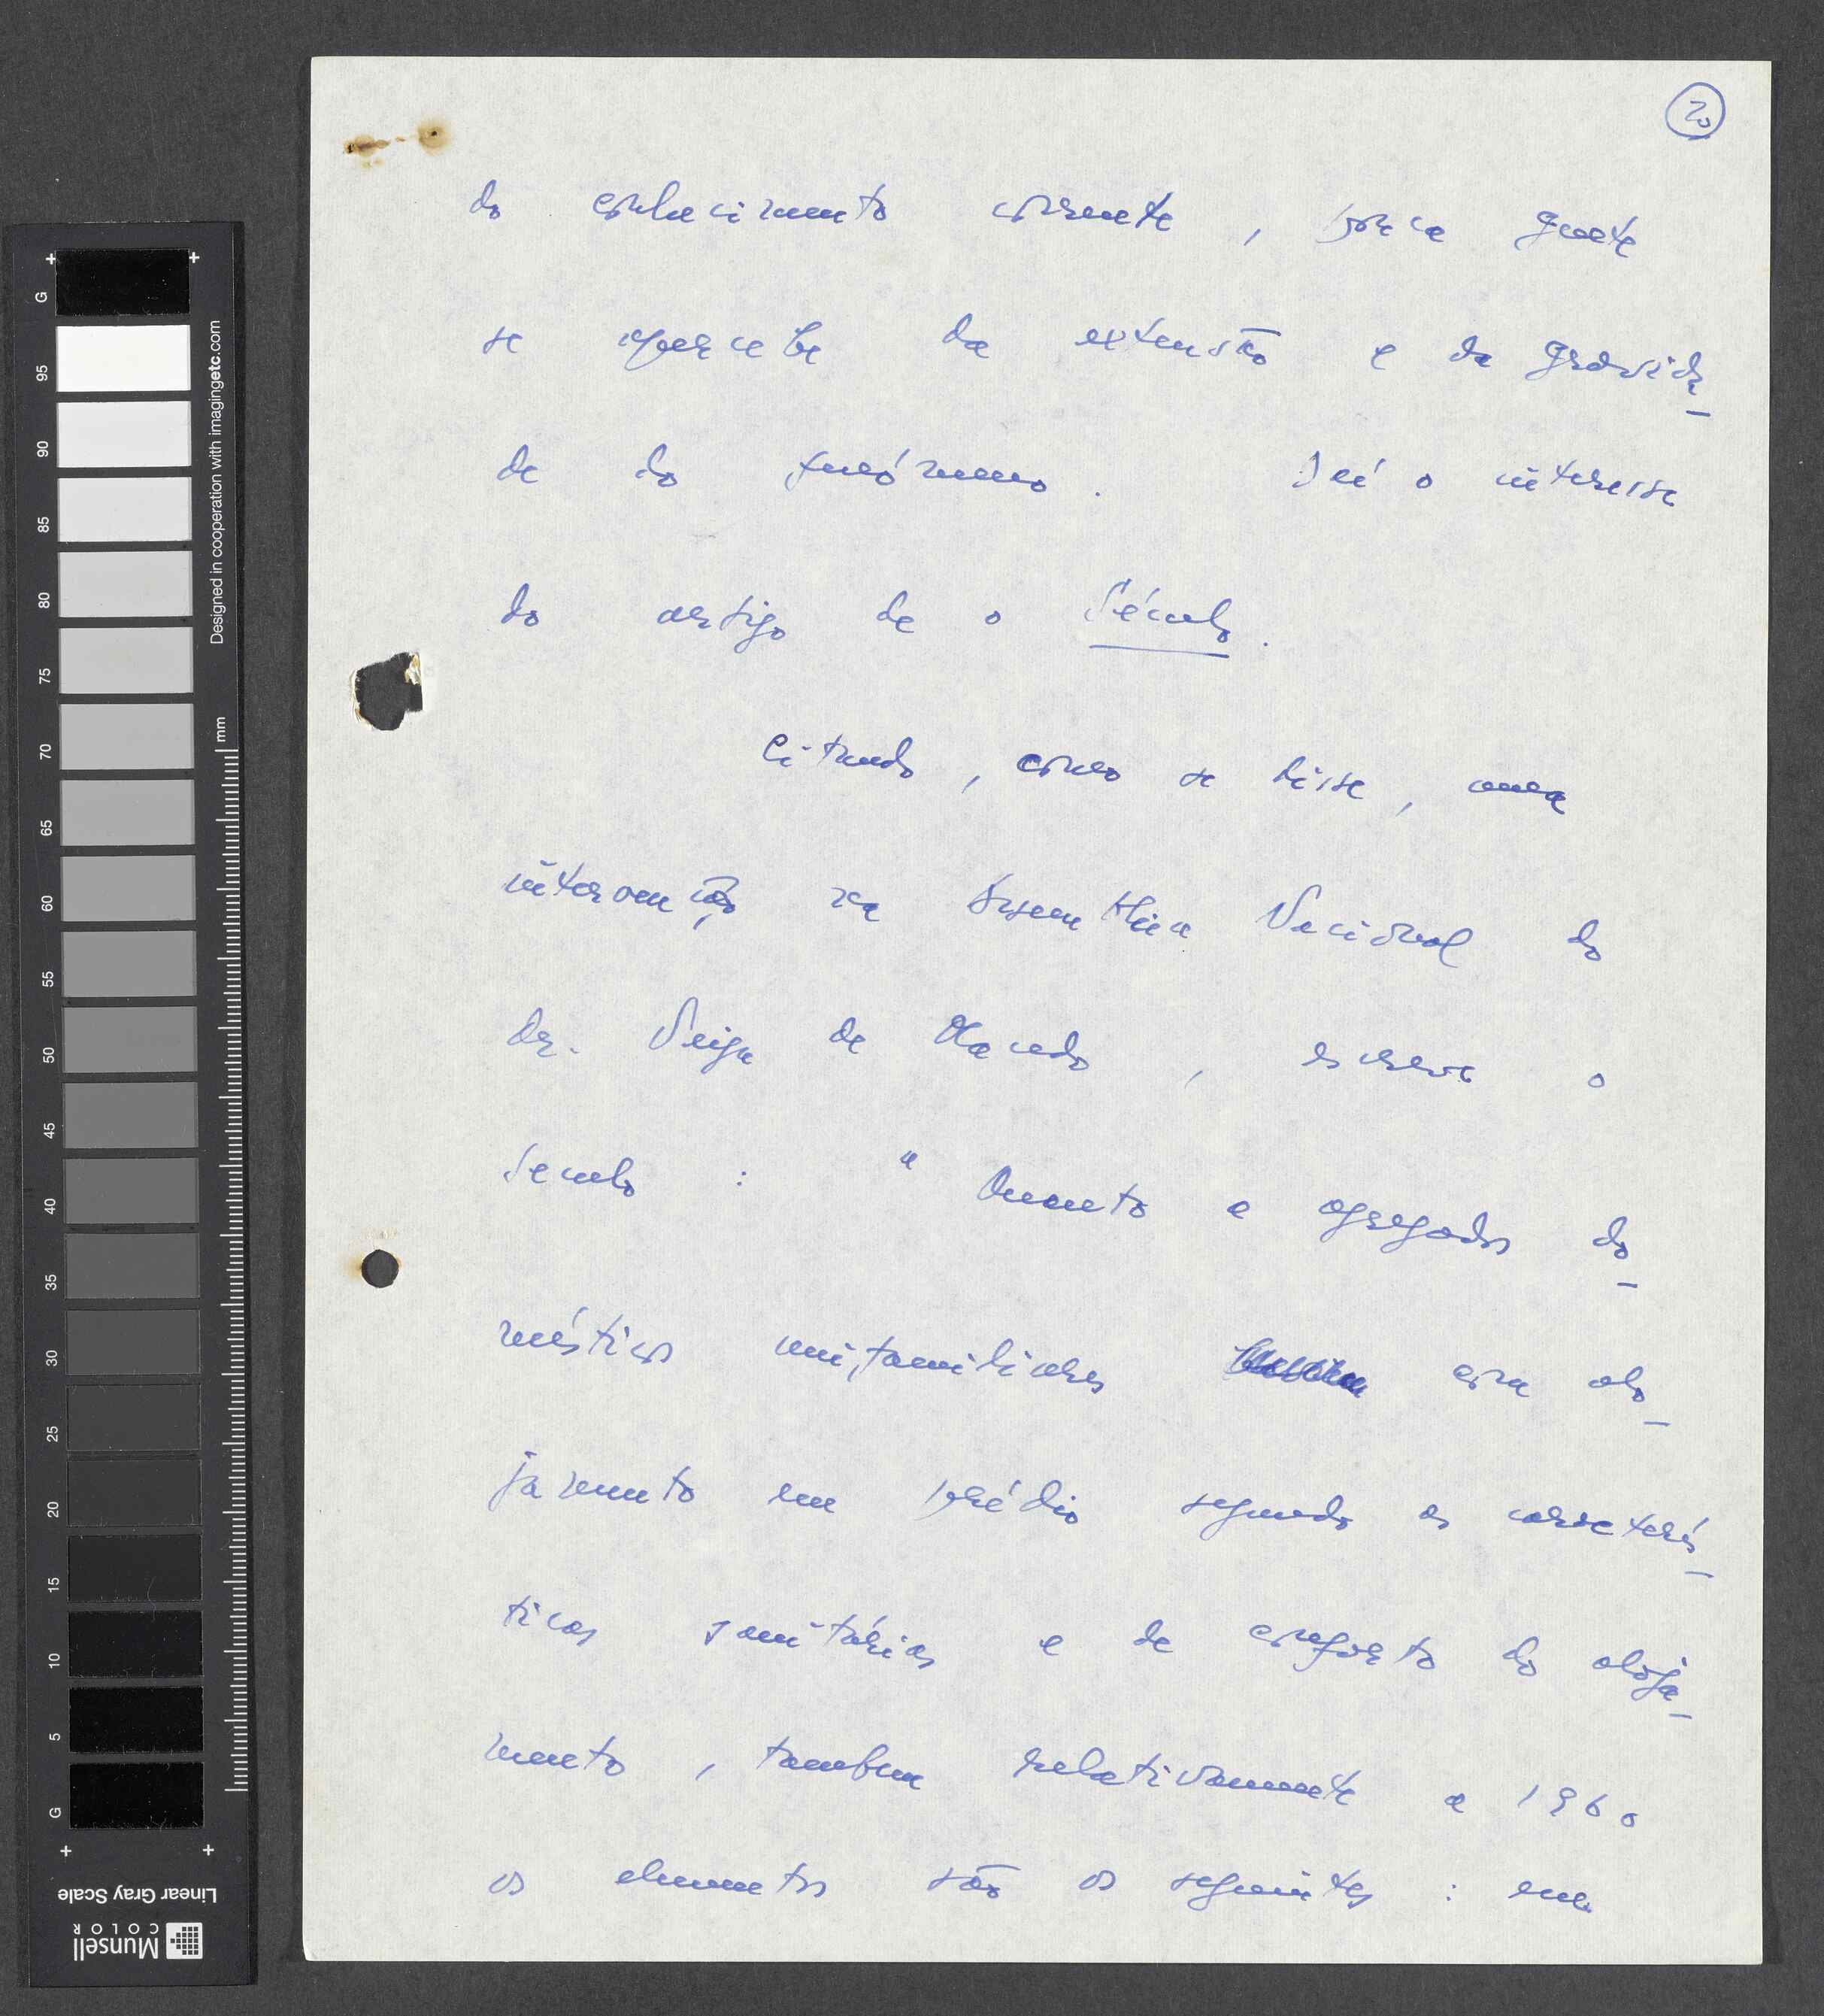 20
do conhecimento corrente, pouca gente
se apercebe da extensão e da gravida-
de do fenómeno. Daí o interesse
do artigo de o Século.
Citando, como se disse, uma
intervenção na Assembleia Nacional do
dr. Veiga de Macedo, escreve o
Seculo : "Quanto a agregados do-
mésticos unifamiliares com alo-
jamento em prédio segundo as caracterís-
ticas sanitárias e de conforto do aloja-
mento, tambem relativamente a 1960
os elementos são os seguintes : em
G
95
90
85
80
75
70
65
60
55
50
45
40
35
30
25
20
15
10
5
G
mm
Designed in cooperation with imagingetc.com
Linear Gray Scale
Munsell
COLOR